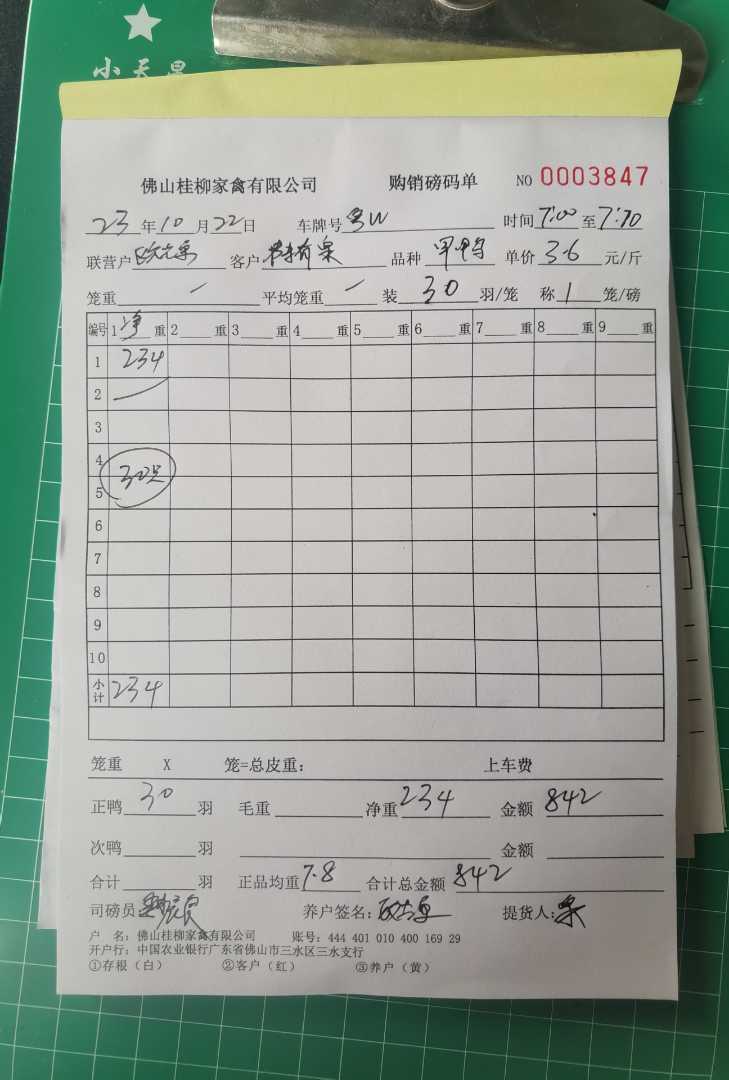 小天星
佛山桂柳家禽有限公司 购销磅码单 NO 0003847
23年10月22日 车牌号粤W 时间7:00至7:10
联营户 客户 品种 单价3.6元/斤
笼重 — 平均笼重 — 装30羽/笼 称1笼/磅
编号 1净重 2重 3重 4重 5重 6重 7重 8重 9重
1 234
2
3
4
30只
5
6
7
8
9
10
小计 234
笼重 X 笼=总皮重: 上车费
正鸭30羽 毛重 净重234 金额842
次鸭 羽 金额
合计 羽 正品均重7.8 合计总金额842
司磅员 养户签名: 提货人:
户 名: 佛山桂柳家禽有限公司 账号: 444 401 010 400 169 29
开户行: 中国农业银行广东省佛山市三水区三水支行
①存根(白) ②客户(红) ③养户(黄)